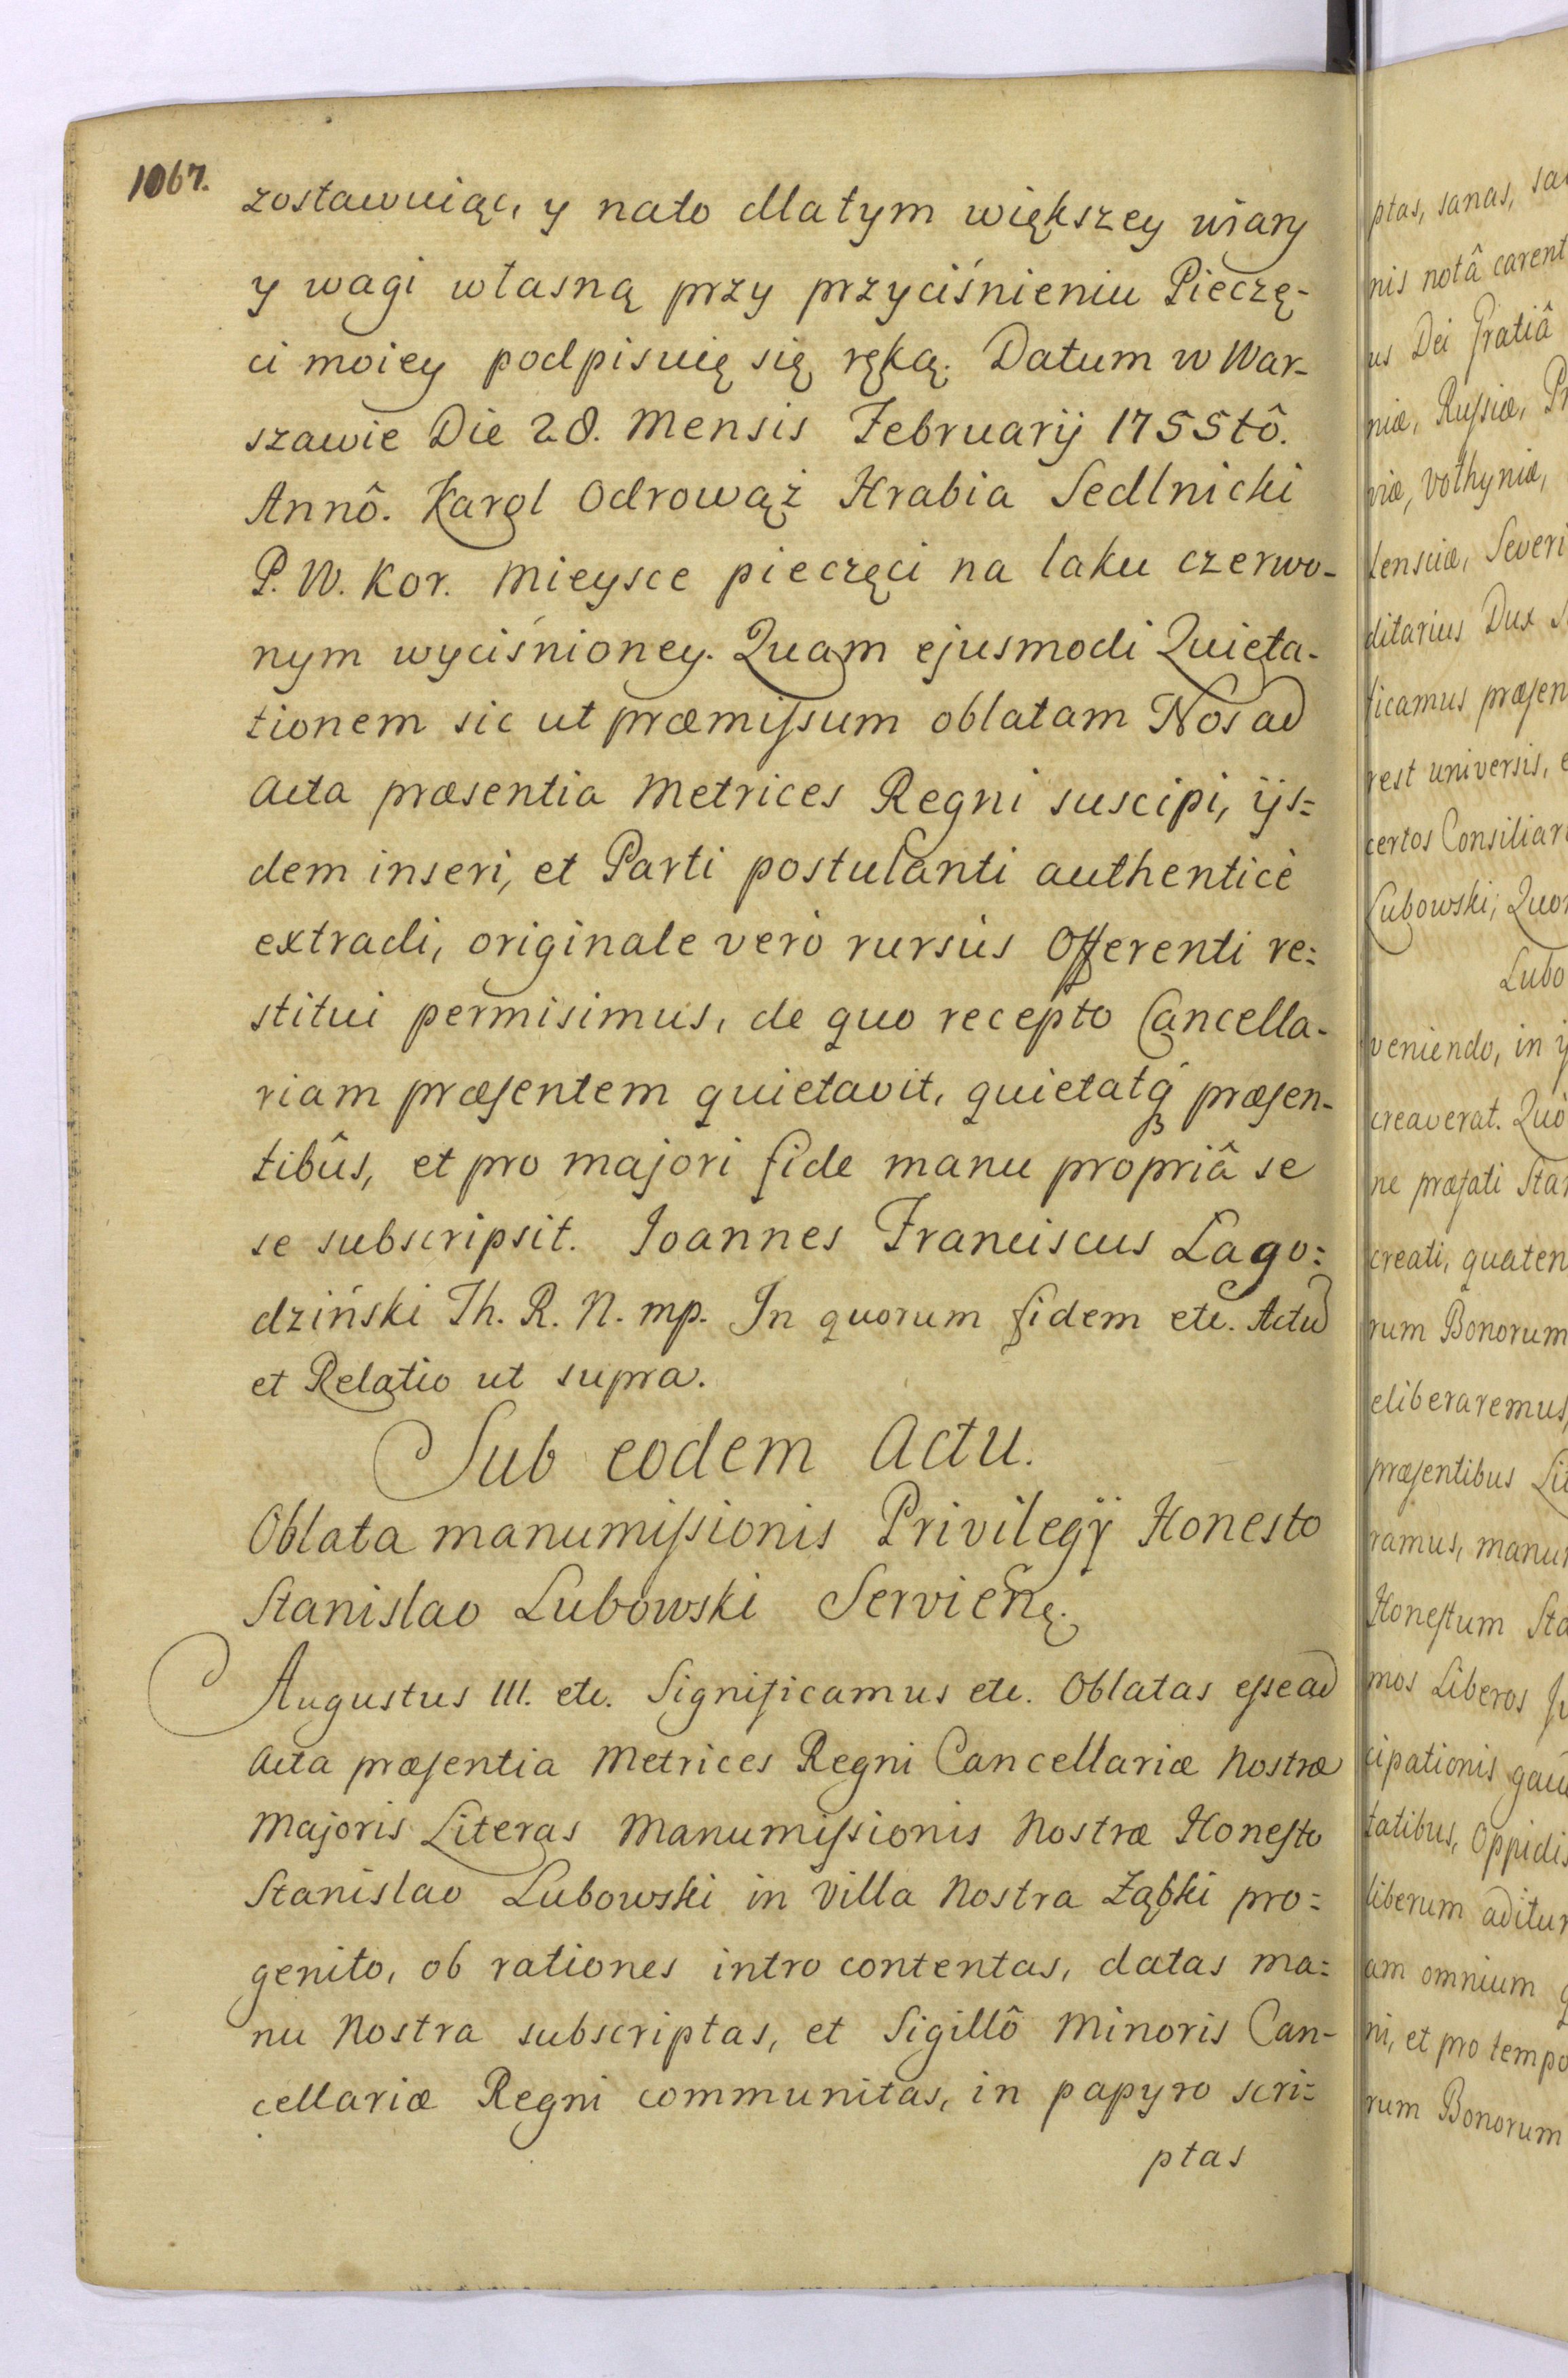 1067.
zostawuiąc, y nato dla tym większey wiary
y wagi własną przy przyciśnieniu Pieczę-
ci moiey podpisuię się ręką. Datum w War-
szawie Die 28. Mensis Februarij 1755tô.
Annô. Karol Odrowąż Hrabia Sedlnicki
P. W. Kor. Mieysce pieczęci na laku czerwo-
nym wyciśnioney. Quam ejusmodi Quieta-
tionem sic ut præmiſsum oblatam Nos ad
Acta præsentia Metrices Regni suscipi, ijs=
dem inseri, et Parti postulanti authenticè
extradi, originale verò rursùs Offerenti re=
stitui permisimus, de quo recepto Cancella-
riam præſentem quietavit, quietatq præſen-
tibûs, et pro majori fide manu propriâ se
se subscripsit. Joannes Franciscus Lago=
dziński Th. R. N. mp. In quorum fidem etc. Actu
et Relatio ut supra.
Sub eodem Actu.
Oblata manumiſsionis Privilegÿ Honesto
Stanislao Lubowski Servien.
Augustus III. etc. Significamus etc. Oblatas eſse ad
Acta præſentia Metrices Regni Cancellariæ Nostræ
Majoris Literas Manumiſsionis Nostræ Honeſto
Stanislao Lubowski in Villa Nostra Ząbki pro=
genito, ob rationes intro contentas, datas ma=
nu Nostra subscriptas, et Sigillô Minoris Can-
cellariæ Regni communitas, in papyro scri=
ptas
ptas, sanas,
nis notâ carent
us Dei Gratiâ
niæ, Ruſsiæ,
viæ, Volhyniæ,
lensciæ, Severi
ditarius Dux
ficamus præſen
rest universis,
certos Consiliar
Lubowski; Quo
Lubo
veniendo, in
creaverat. Quò
ne præfati Sta
creati, quaten
rum Bonorum
eliberaremus,
præſentibus Li
ramus, manu
Honeſtum Sta
mos Liberos
cipationis gau
tatibus, Oppidis
liberum aditu
am omnium
ni, et pro tempo
rum Bonorum